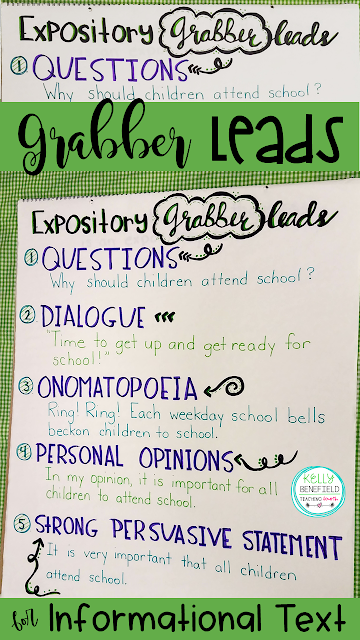 Expository Grabber leads
① QUESTIONS
Why should children attend school?
Grabber Leads
Expository Grabber leads
① QUESTIONS
Why should children attend school?
② DIALOGUE
"Time to get up and get ready for
school!"
③ ONOMATOPOEIA
Ring! Ring! Each weekday school bells
beckon children to school.
④ PERSONAL OPINIONS
In my opinion, it is important for all
children to attend school.
KELLY
BENEFIELD
TEACHING
⑤ STRONG PERSUASIVE STATEMENT
It is very important that all children
attend school.
for Informational Text